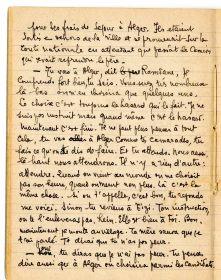 pour les frais de séjour à Alger. Ils étaient
sortis en dehors de la ville et se promenaient sur la
route nationale en attendant que passât le Camion
qui devait reprendre le père.
— Tu vas à Alger, dit le père Ramdane, je
comprends fort bien tu sais. Vous serez très nombreux
là-bas mais on choisira que quelques uns.
Le choix c'est toujours le hasard qui le fait. Je ne
suis pas instruit mais quand même c'est le hasard.
Maintenant c'est fini. Je ne peux plus penser à tout
cela, tu vas à Alger comme tes camarades, tu
fais ce qu'on te dis de faire. Et tu attends, nous aussi
là-haut nous attendrons. Il n'y a rien d'autre :
attendre. Quand on vient au monde on ne choisit
pas son heure, quand on meurt non plus. Là c'est la
même chose. Si on t'appelle, c'est bon, tu regardes
me voici. Sinon tu reviens à Tizi. Ton instruction,
on te l'enlèvera pas, hein. Elle est bien à toi. Bon.
maintenant je monte au village. Ta mère saura que je
t'ai parlé. Je dirai que tu n'as pas peur.
— Oui, tu diras que je n'ai pas peur. Tu peux
dire aussi que à Alger on choisira parmi les candidats